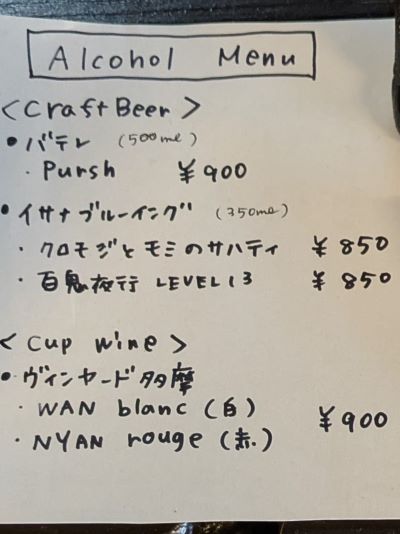 Alcohol Menu
<Craft Beer>
• バテレ (500ml)
・Pursh ¥900
• イサナブルーイング (350ml)
・クロモジとモミのサハティ ¥850
・百鬼夜行 LEVEL13 ¥850
<Cup Wine>
• ヴィンヤード多摩
・WAN blanc (白)
¥900
・NYAN rouge (赤)